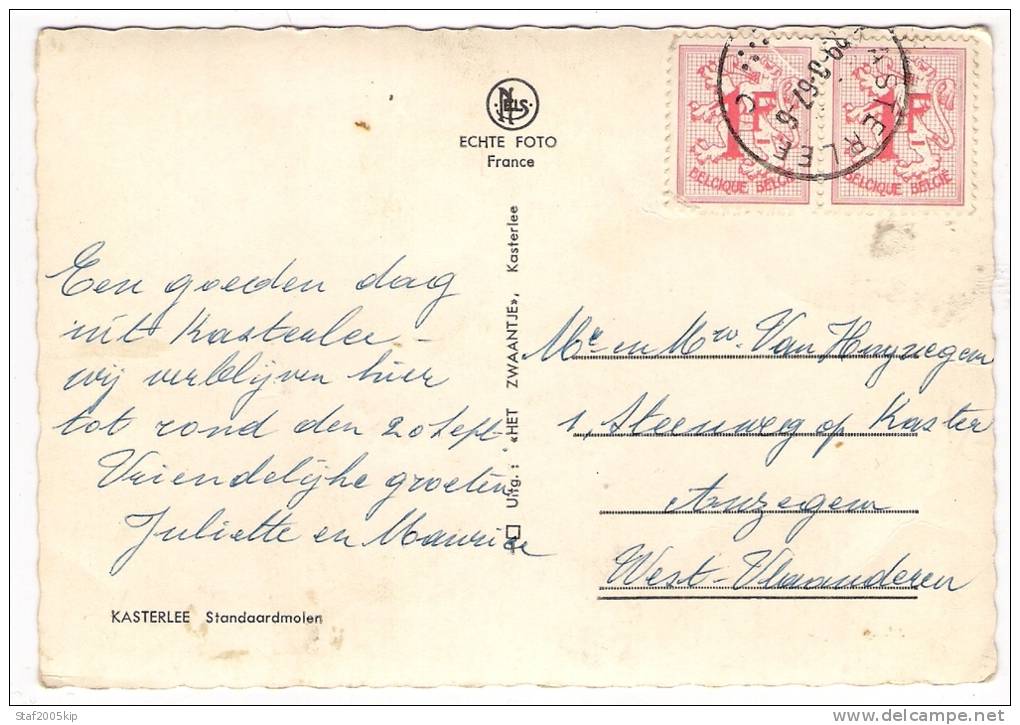 NELS
ECHTE FOTO
France
1F
BELGIQUE BELGIË
1F
BELGIQUE BELGIË
KASTERLEE
C
Uitg.: «HET ZWAANTJE», Kasterlee
Een goeden dag
uit Kasterlee -
wij verblijven hier
tot rond den 20 sept.
Vriendelijke groeten
Juliette en Maurice
Mr en Mw. Van Huyzegem
1, Steenweg op Kaster
Anzegem
West-Vlaanderen
KASTERLEE Standaardmolen
Staf2005kip
delcampe.net